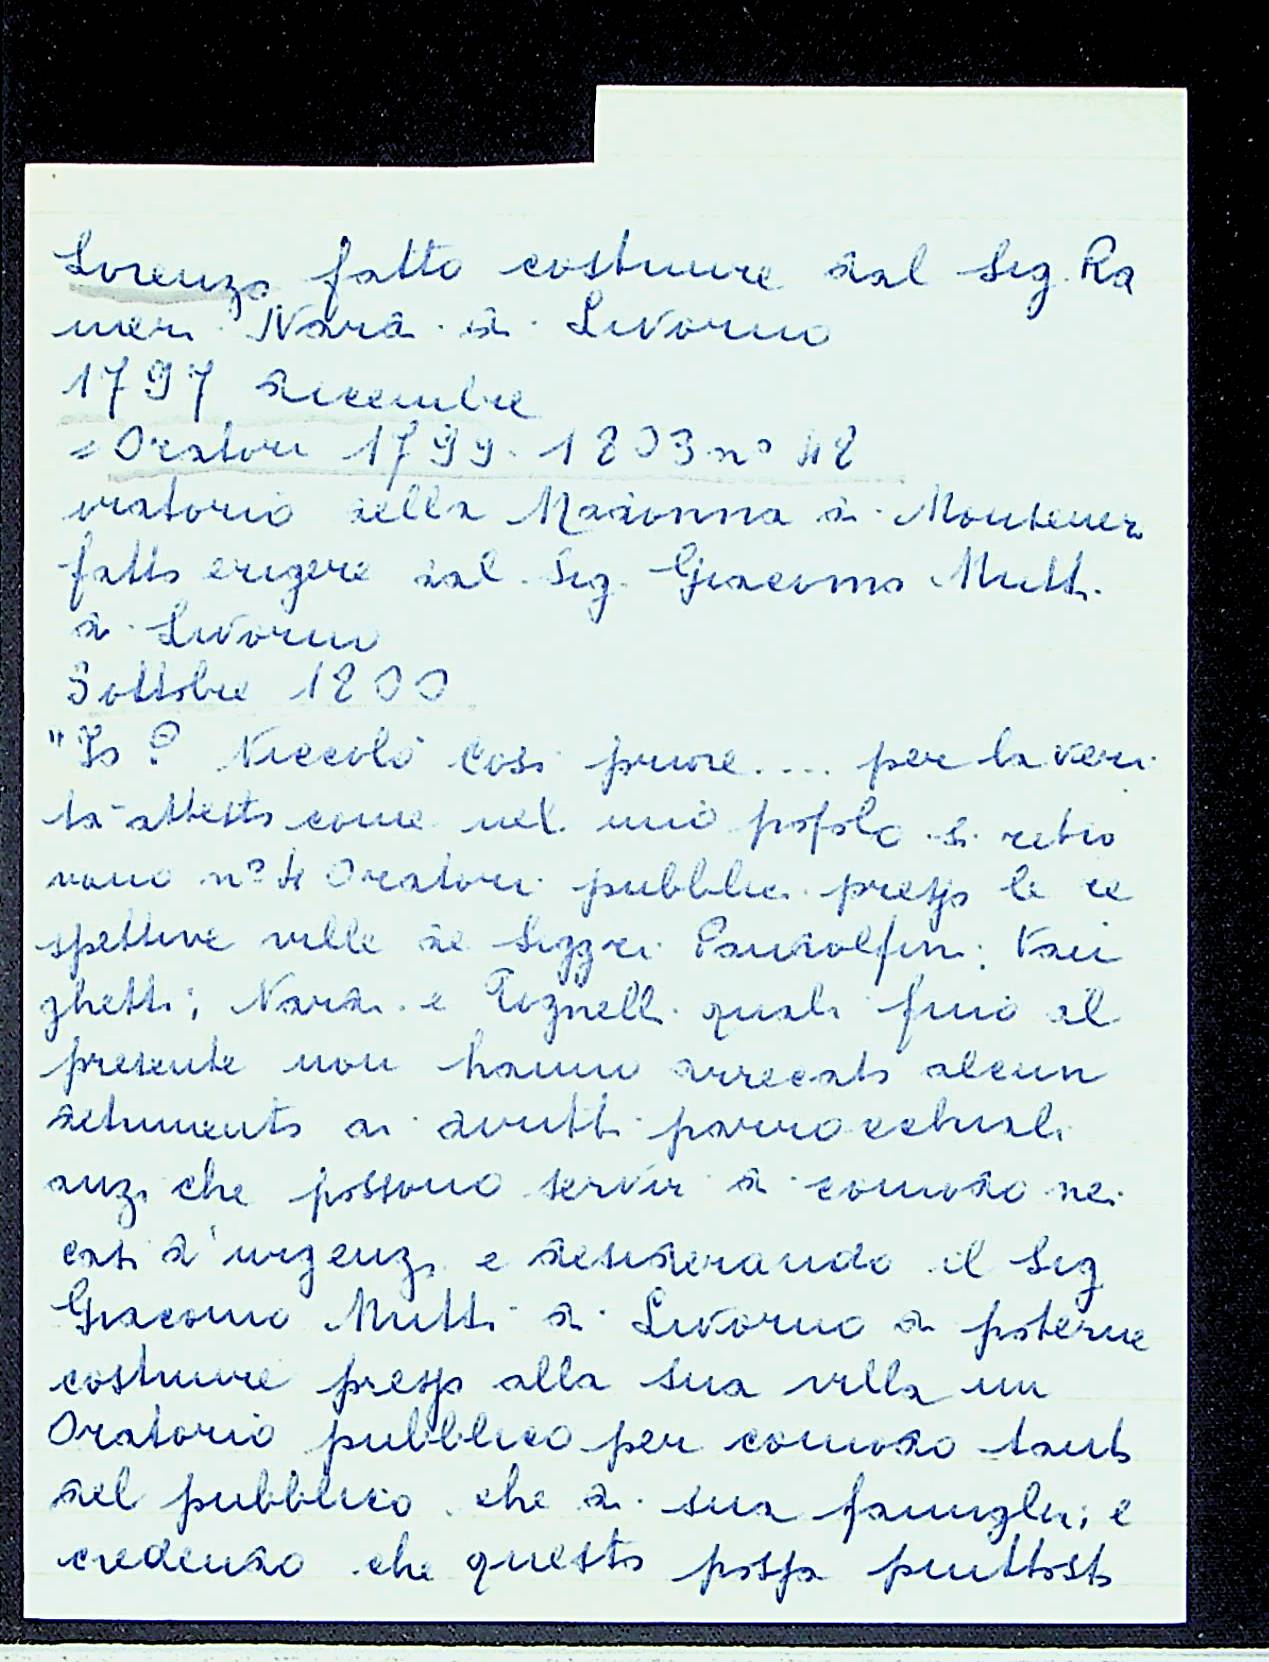 Lorenzo fatto costruire dal Sig. Ra
nieri Nardi di Livorno
1797 dicembre
= Oratori 1799. 1803 n° 42
oratorio della Madonna di Montenero
fatto erigere dal Sig. Giacomo Mutti
di Livorno
3 ottobre 1800
"Io P. Niccolò Cosi priore .... per la veri
tà attesto come nel mio popolo si retro
vano n° 4 Oratori pubblici presso le re
spettive ville de Siggri Pandolfini;
ghetti; Nardi e Tognelli quali fino al
presente non hanno arrecato alcun
detrimento ai diritti parrocchiali
anzi che possono servir di comodo nei
casi d'urgenza e desiderando il Sig
Giacomo Mutti di Livorno di poterne
costruire presso alla sua villa un
Oratorio pubblico per comodo tanto
del pubblico che di sua famiglia; e
credendo che questo possa piuttosto